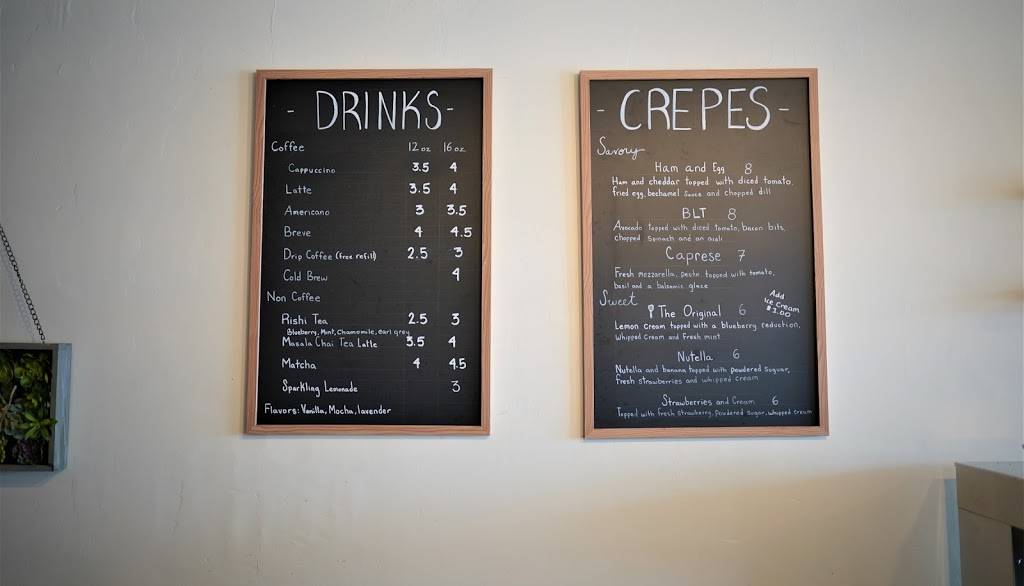 - DRINKS -
Coffee 12 oz 16 oz
Cappuccino 3.5 4
Latte 3.5 4
Americano 3 3.5
Breve 4 4.5
Drip Coffee (free refill) 2.5 3
Cold Brew 4
Non Coffee
Rishi Tea 2.5 3
Blueberry, Mint, Chamomile, earl grey
Masala Chai Tea Latte 3.5 4
Matcha 4 4.5
Sparkling Lemonade 3
Flavors: Vanilla, Mocha, lavender
- CREPES -
Savory
Ham and Egg 8
Ham and cheddar topped with diced tomato,
fried egg, bechamel sauce and chopped dill
BLT 8
Avocado topped with diced tomato, bacon bits,
chopped spinach and an aioli
Caprese 7
Fresh mozzarella, pesto topped with tomato,
basil and a balsamic glaze
Sweet
Add
Ice Cream
$1.00
The Original 6
Lemon cream topped with a blueberry reduction,
whipped cream and fresh mint
Nutella 6
Nutella and banana topped with powdered suguar,
fresh strawberries and whipped cream
Strawberries and Cream 6
Topped with fresh strawberry, powdered sugar, whipped cream